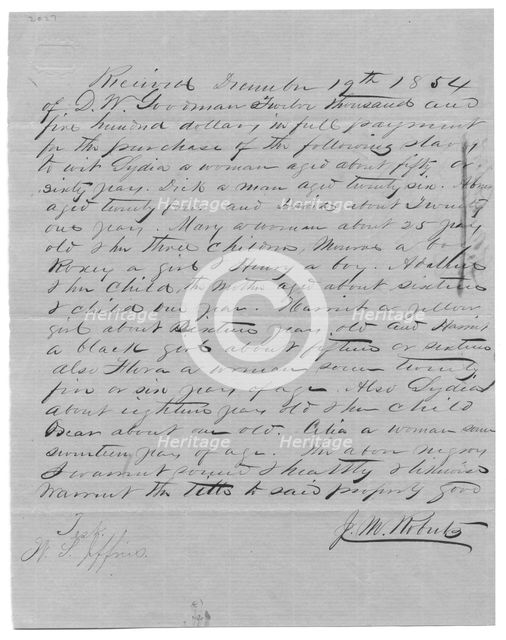 2027
Received December 19th 1854
of D. W. Goorman Twelve thousand and
five hundred dollars in full payment
for the purchase of the following slaves
to wit Lydia a woman aged about fifty or
sixty years. Dick a man aged twenty six.
aged twenty four and about twenty
one years. Mary a woman about 25 years
old & her three children, Monroe a boy
Roxey a girl & Henry a boy.
& her child the mother aged about sixteen
& child one year. Harriet a yellow
girl about sixteen years old and Harriet
a black girl about fifteen or sixteen
also Flora a woman some twenty
five or six years of age. Also Lydia
about eighteen years old & her child
about one old. Celia a woman some
seventeen years of age. The above negroes
I warrant sound & healthy & likewise
warrant the title to said property good
J. M. Roberts
Test.
W. S.
Heritage
Heritage
Heritage
Heritage
Heritage
Heritage
Heritage
Heritage
Heritage
©